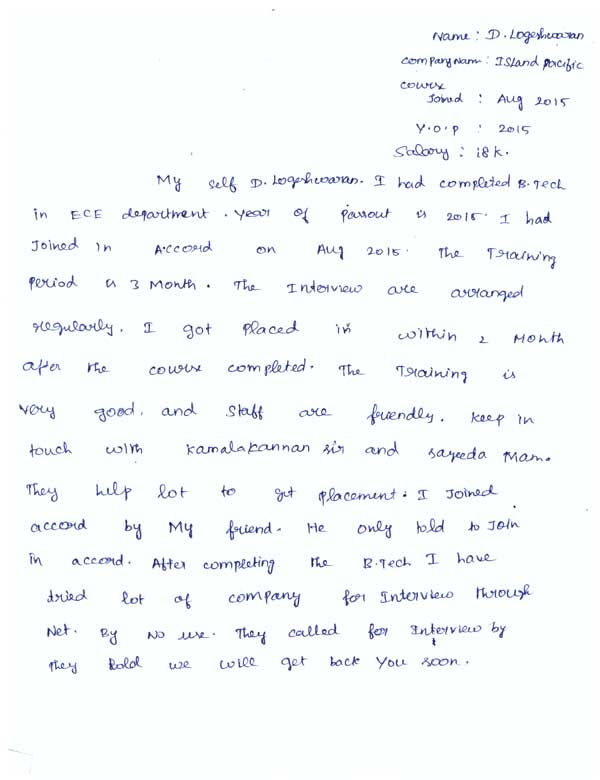 Name : D. Logeshwaran
Company Name : ISland Pacific
Course
Joined : Aug 2015
Y.O.P : 2015
Salary : 18k.
My self D. Logeshwaran. I had completed B.Tech
in ECE department. Year of Passout is 2015. I had
Joined in Accord on Aug 2015. The Training
Period is 3 Month. The Interview are arranged
regularly. I got Placed in within 2 Month
after the course completed. The Training is
very good, and Staff are friendly. Keep in
touch with Kamalakannan sir and sayeeda Mam.
They help lot to get placement. I Joined
accord by My friend. He only told to Join
in accord. After completing the B.Tech I have
tried lot of company for Interview through
Net. By No use. They called for Interview by
They told we will get back You soon.